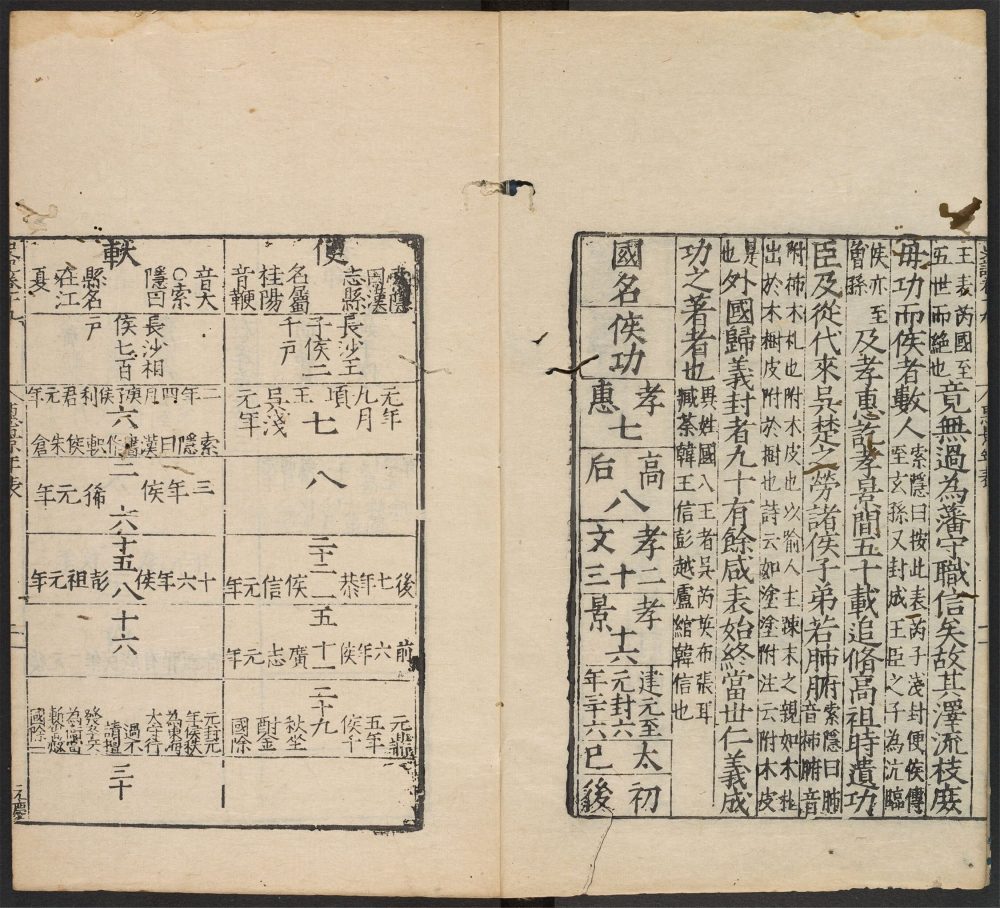 王表芮國至
五世而絕也
竟無過為藩守職信矣故其澤流枝庶
毋功而侯者數人
索隱曰按此表芮子淺封便侯傳
至玄孫又封成王臣之子為沅陵
侯亦至
曾孫
及孝惠訖孝景間五十載追脩高祖時遺功
臣及從代來吳楚之勞諸侯子弟若肺腑
索隱曰肺
音柿腑音
附柿木札也附木皮也以喻人主疎末之親如木札
出於木樹皮附於樹也詩云如塗塗附注云附木皮
也
外國歸義封者九十有餘咸表始終當世仁義成
功之著者也
異姓國八王者吳芮英布張耳
臧荼韓王信彭越盧綰韓信也
國名
侯功
孝惠七
高后八
孝文二十三
孝景十六
建元至元封六年三十六
太初已後
便
志縣
名屬
桂陽
音鞭
長沙王
子侯二
千戶
元年
九月
頃王
吳淺
元年
七
八
二十二
後七年恭侯信元年
一
五
前六年侯廣志元年
十一
二十九
元鼎
五年
侯千
秋坐
酎金
國除
軑
音大
○索
隱曰
縣名
在江
夏
長沙相
侯七百
戶
二年四月庚子侯利倉元年
六
索隱曰漢書作軑侯朱倉
二
三年侯豨元年
六
十五
十六年侯彭祖元年
八
十六
三十
元封元
年侯秩
為東海
太守行
過不
請擅
發卒
為衛當
斬會赦
國除